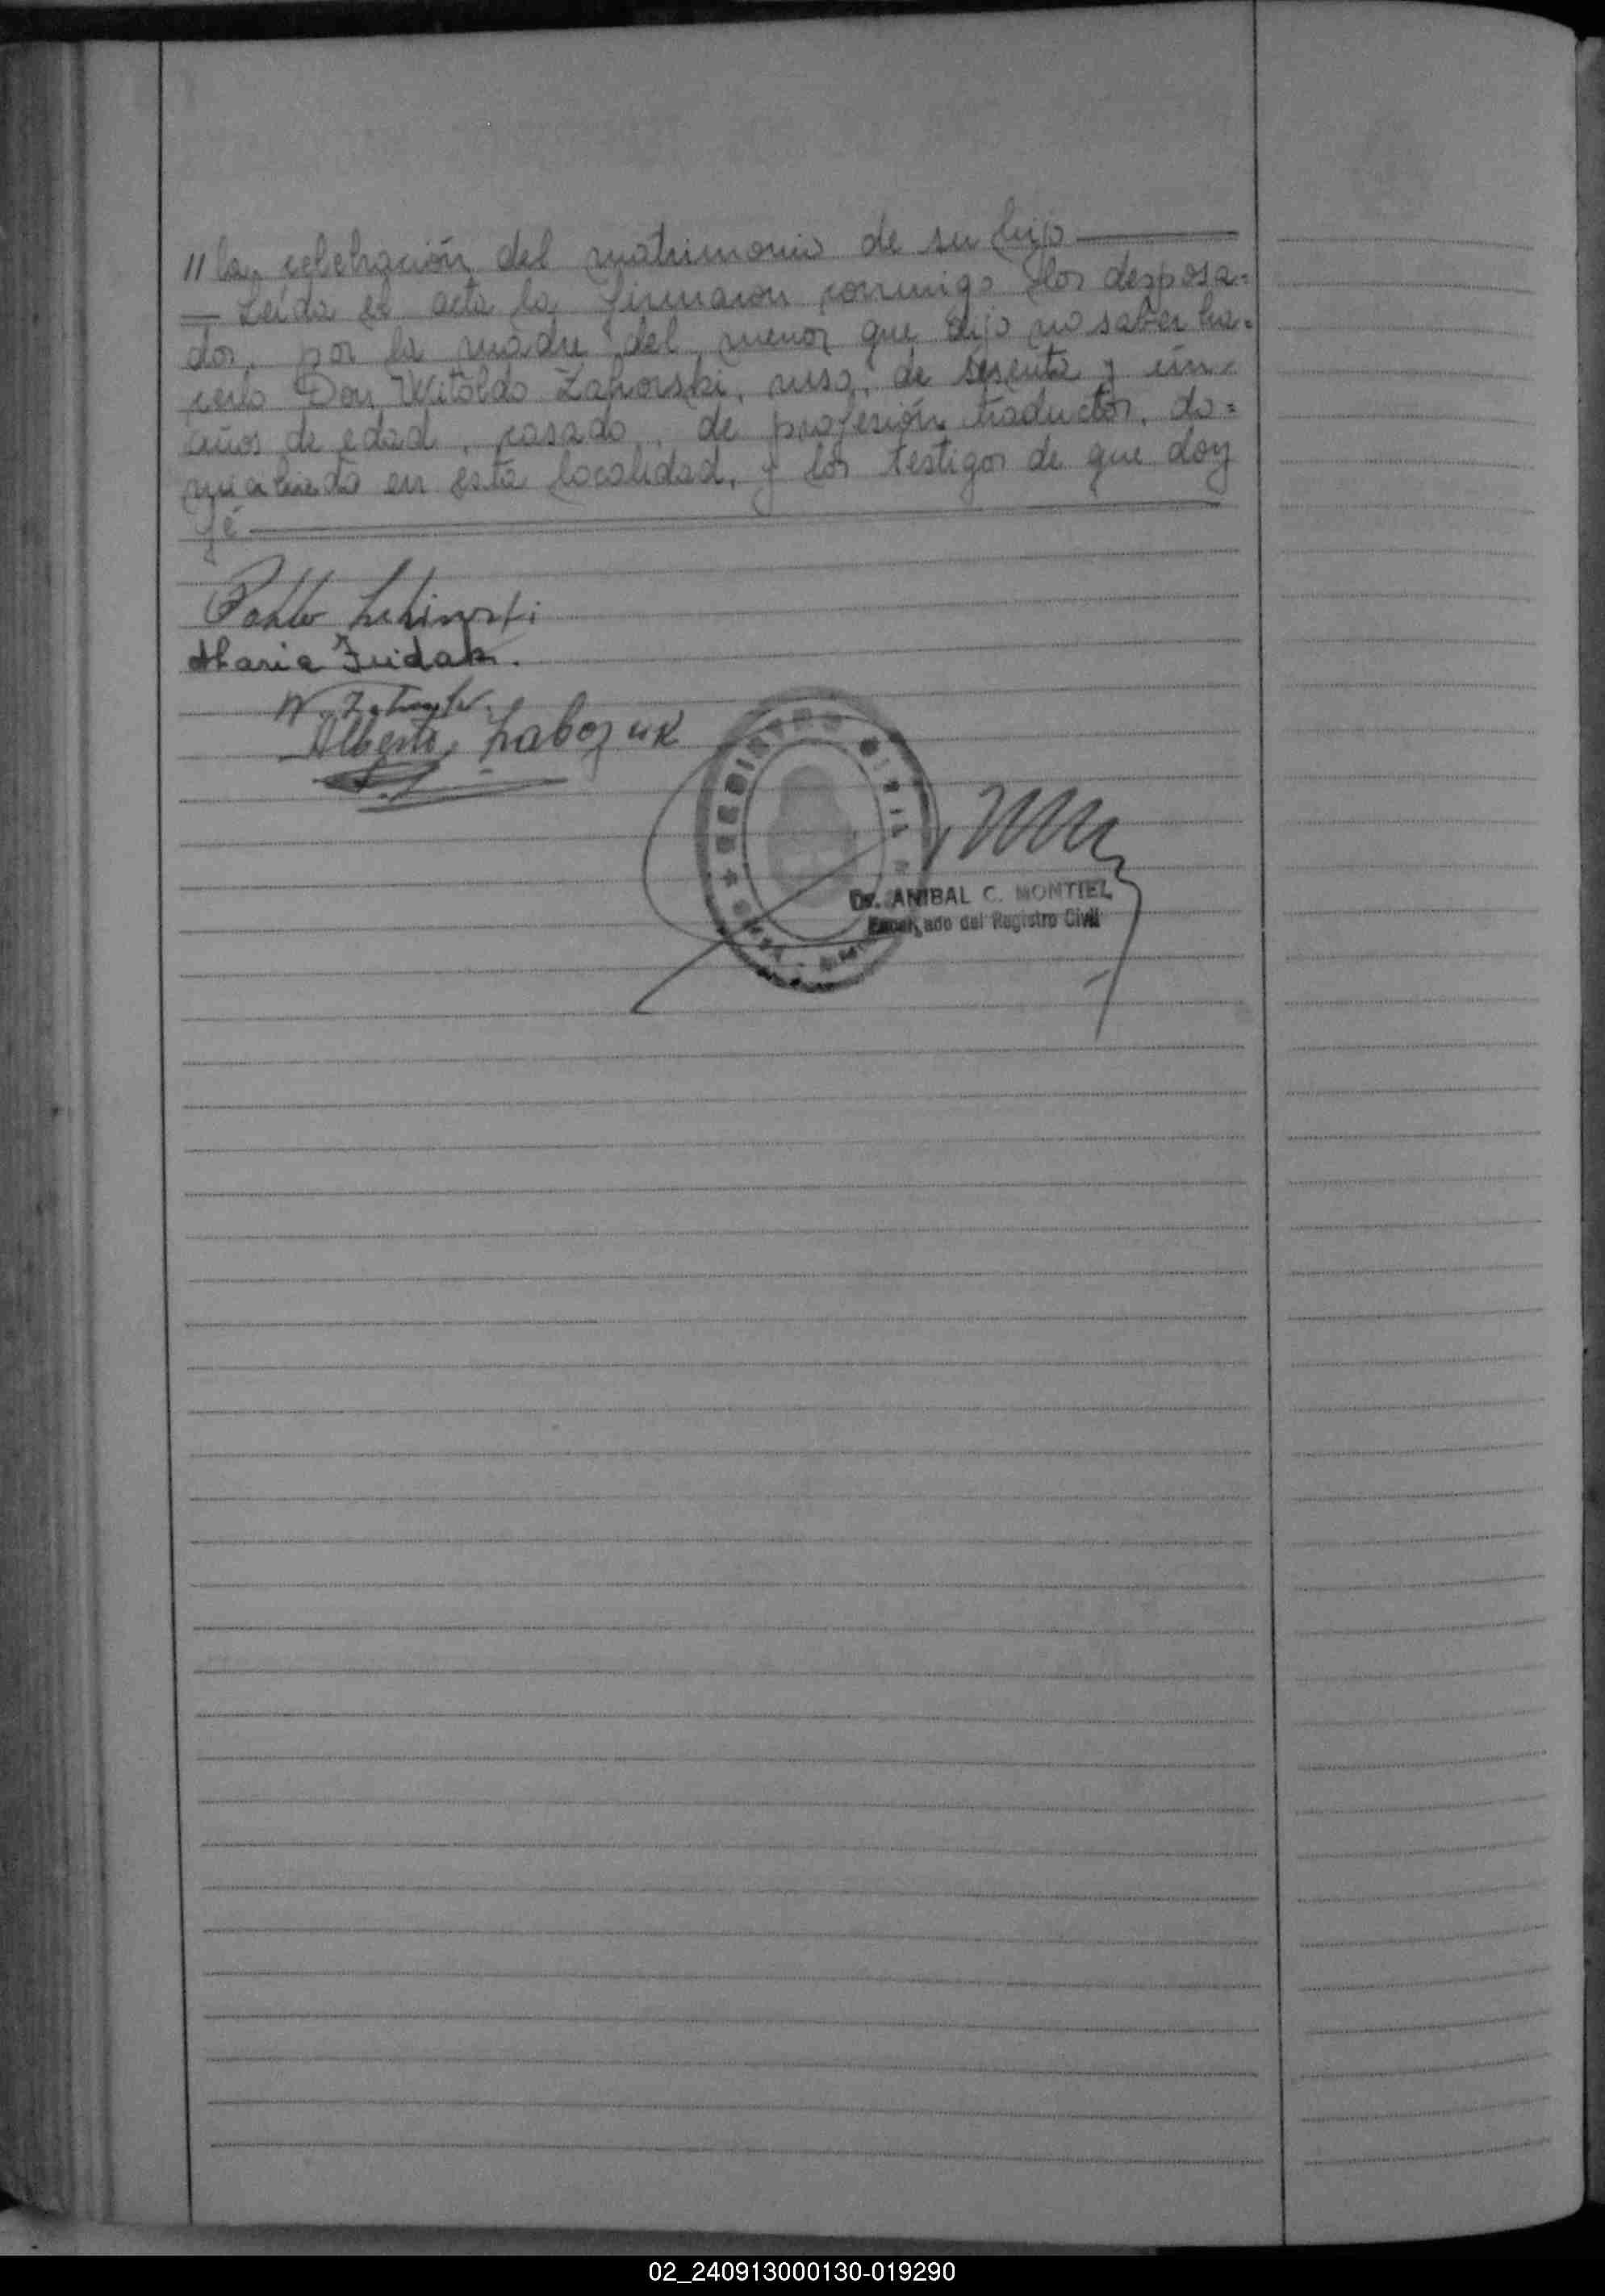 // la celebración del matrimonio de su hijo
— Leída el acta la firmaron conmigo los desposa=
dos, por la madre del menor que dijo no saber ha=
cerlo Don Witoldo Zahorski, ruso, de sesenta y un
años de edad, casado, de profesión traductor, do=
miciliado en esta localidad, y los testigos de que doy
fé
Pablo
Maria
Alberto
REGISTRO CIVIL
Dr. ANIBAL C. MONTIEL
Encargado del Registro Civil
02_240913000130-019290